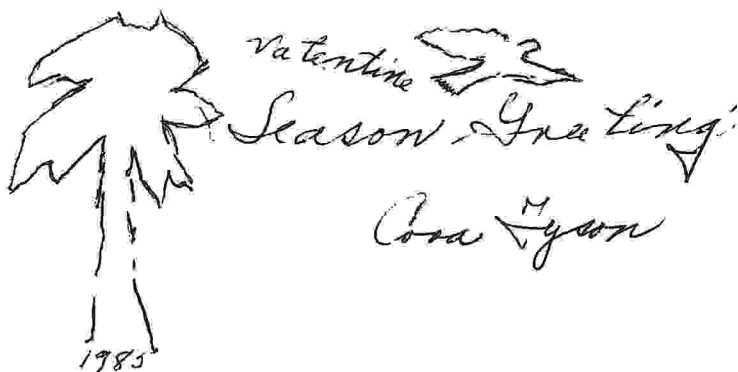 Valentine
Season Greeting
Cora Tyson
1985